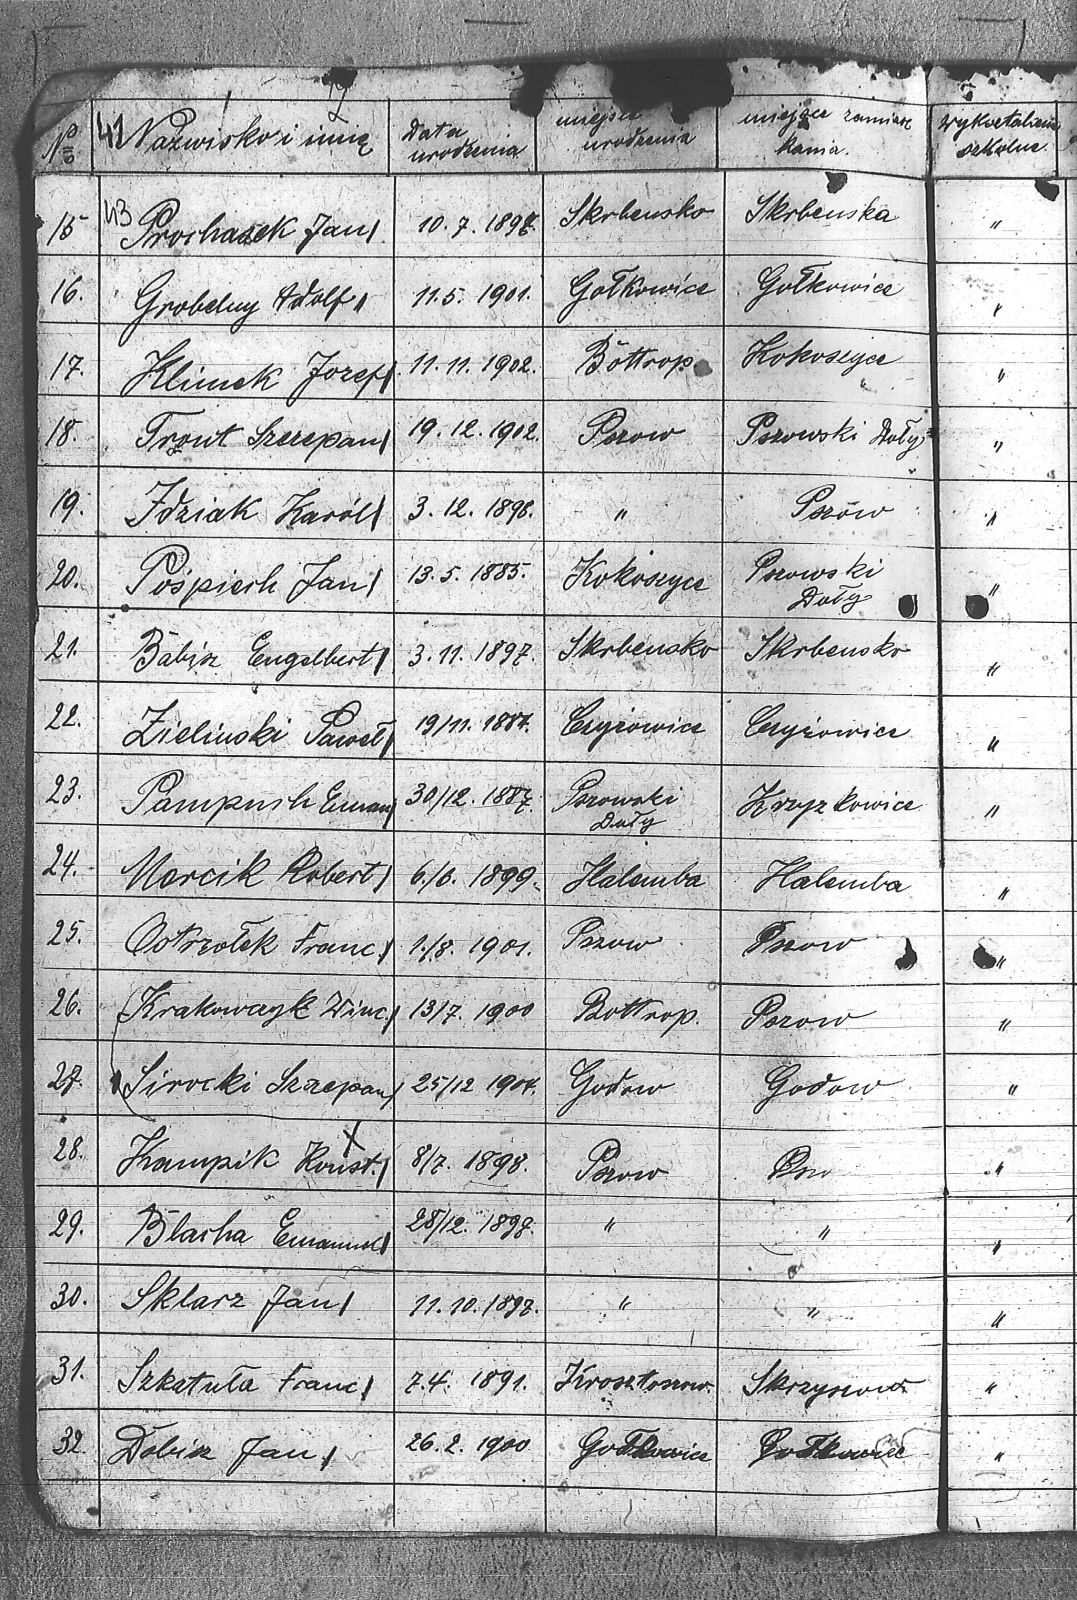 No 42 Nazwisko i imię Data urodzenia miejsce urodzenia miejsce zamieszkania. wykształcenie szkolne
43
15 Prochasek Jan 10. 7. 1897. Skrbensko Skrbenska "
16. Grobelny Adolf 11. 5. 1901. Gołkowice Gołkowice "
17. Klimek Jozef 11. 11. 1902. Bottrop Kokoszyce "
18. Tront Szczepan 19. 12. 1902. Pszow Pszowski Doły "
19. Idziak Karól 3. 12. 1898. " Pszów "
20. Pośpiech Jan 13. 5. 1885. Kokoszyce Pszowski Doły "
21. Babisz Engelbert 3. 11. 1897. Skrbensko Skrbensko "
22. Zielinski Paweł 19/11. 1887. Czyżowice Czyżowice "
23. Pampuch Eman 30/12. 1887. Pszowski Doły Krzyzkowice "
24. Marcik Robert 6./6. 1899. Halemba Halemba "
25. Ostrzołek Franc 1./8. 1901. Pszow Pszow "
26. Krakowczyk Winc 13/7. 1900 Bottrop. Pszow "
27. Sirocki Szczepan 25/12 1904. Godow Godow "
28. Kampik Konst. X 8/7. 1898. Pszow Pszo "
29. Blacha Emanuel 28/12. 1897. " " "
30. Sklarz Jan 11. 10. 1897. " " "
31. Szkatuła Franc 7. 4. 1891. Krosztoszow. Skrzyszow "
32 Dobisz Jan 26. 2. 1900 Gołkowice Gołkowice "